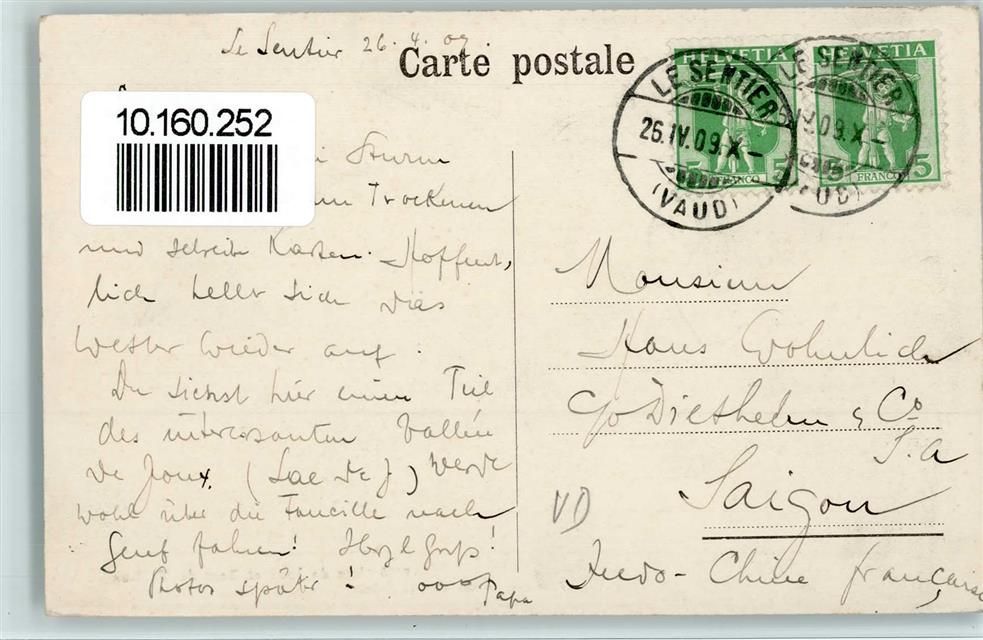 Le Sentier 26.4.09.
Carte postale
HELVETIA
HELVETIA
5 FRANCO 5
FRANCO 5
LE SENTIER
26.IV.09.X-
(VAUD)
LE SENTIER
IV.09.X-
10.160.252
Sturm
Trockenen
und schreibe Karten. Hoffent-
lich hellt sich das
Wetter wieder auf.
Du siehst hier einen Teil
des interessanten Vallée
de Joux. (Lac de J) Werde
wohl über die Faucille nach
Genf fahren! Herzl Gruß!
Photos später! Papa
Monsieur
Hans Wohnlich
c/o Diethelm & Co
S.a
Saigon
Indo-Chine française
VD